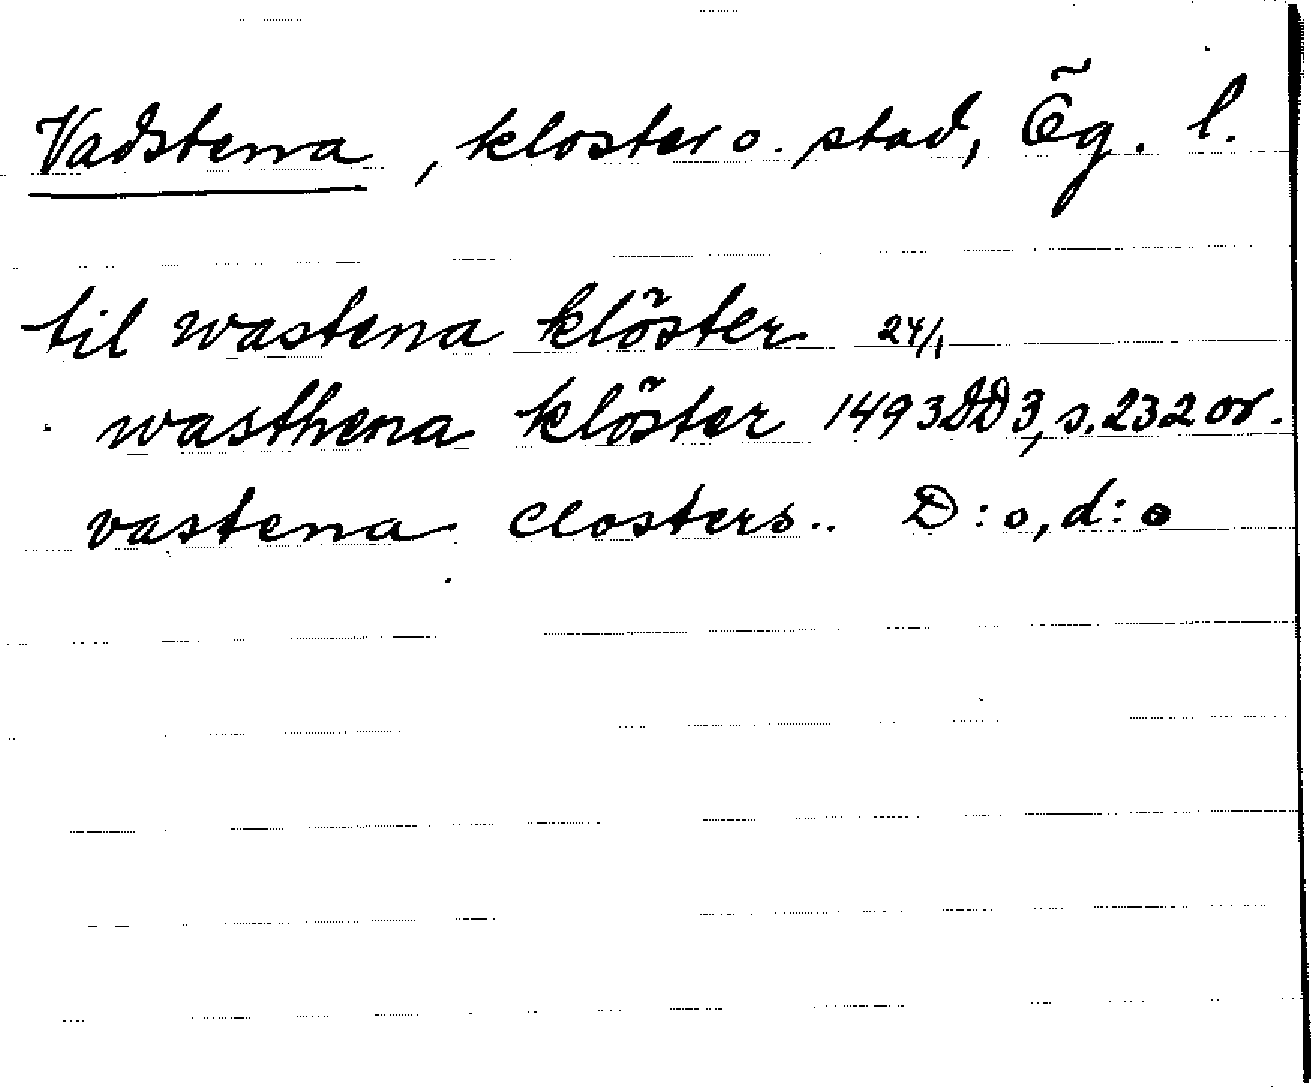 Vadstena, kloster o. stad, Ög. l.
til wastena klöster 24/1
wasthena klöster 1493 DD 3, s. 232 or.
vastena closters.. D:o, d:o